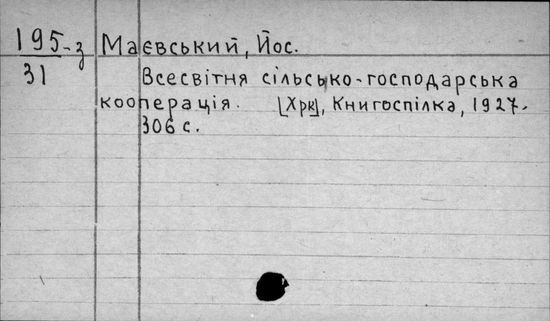 195-з Маєвський, Йос.
31 Всесвітня сільсько-господарська
кооперація. [Хрк], Книгоспілка, 1927.
306 с.